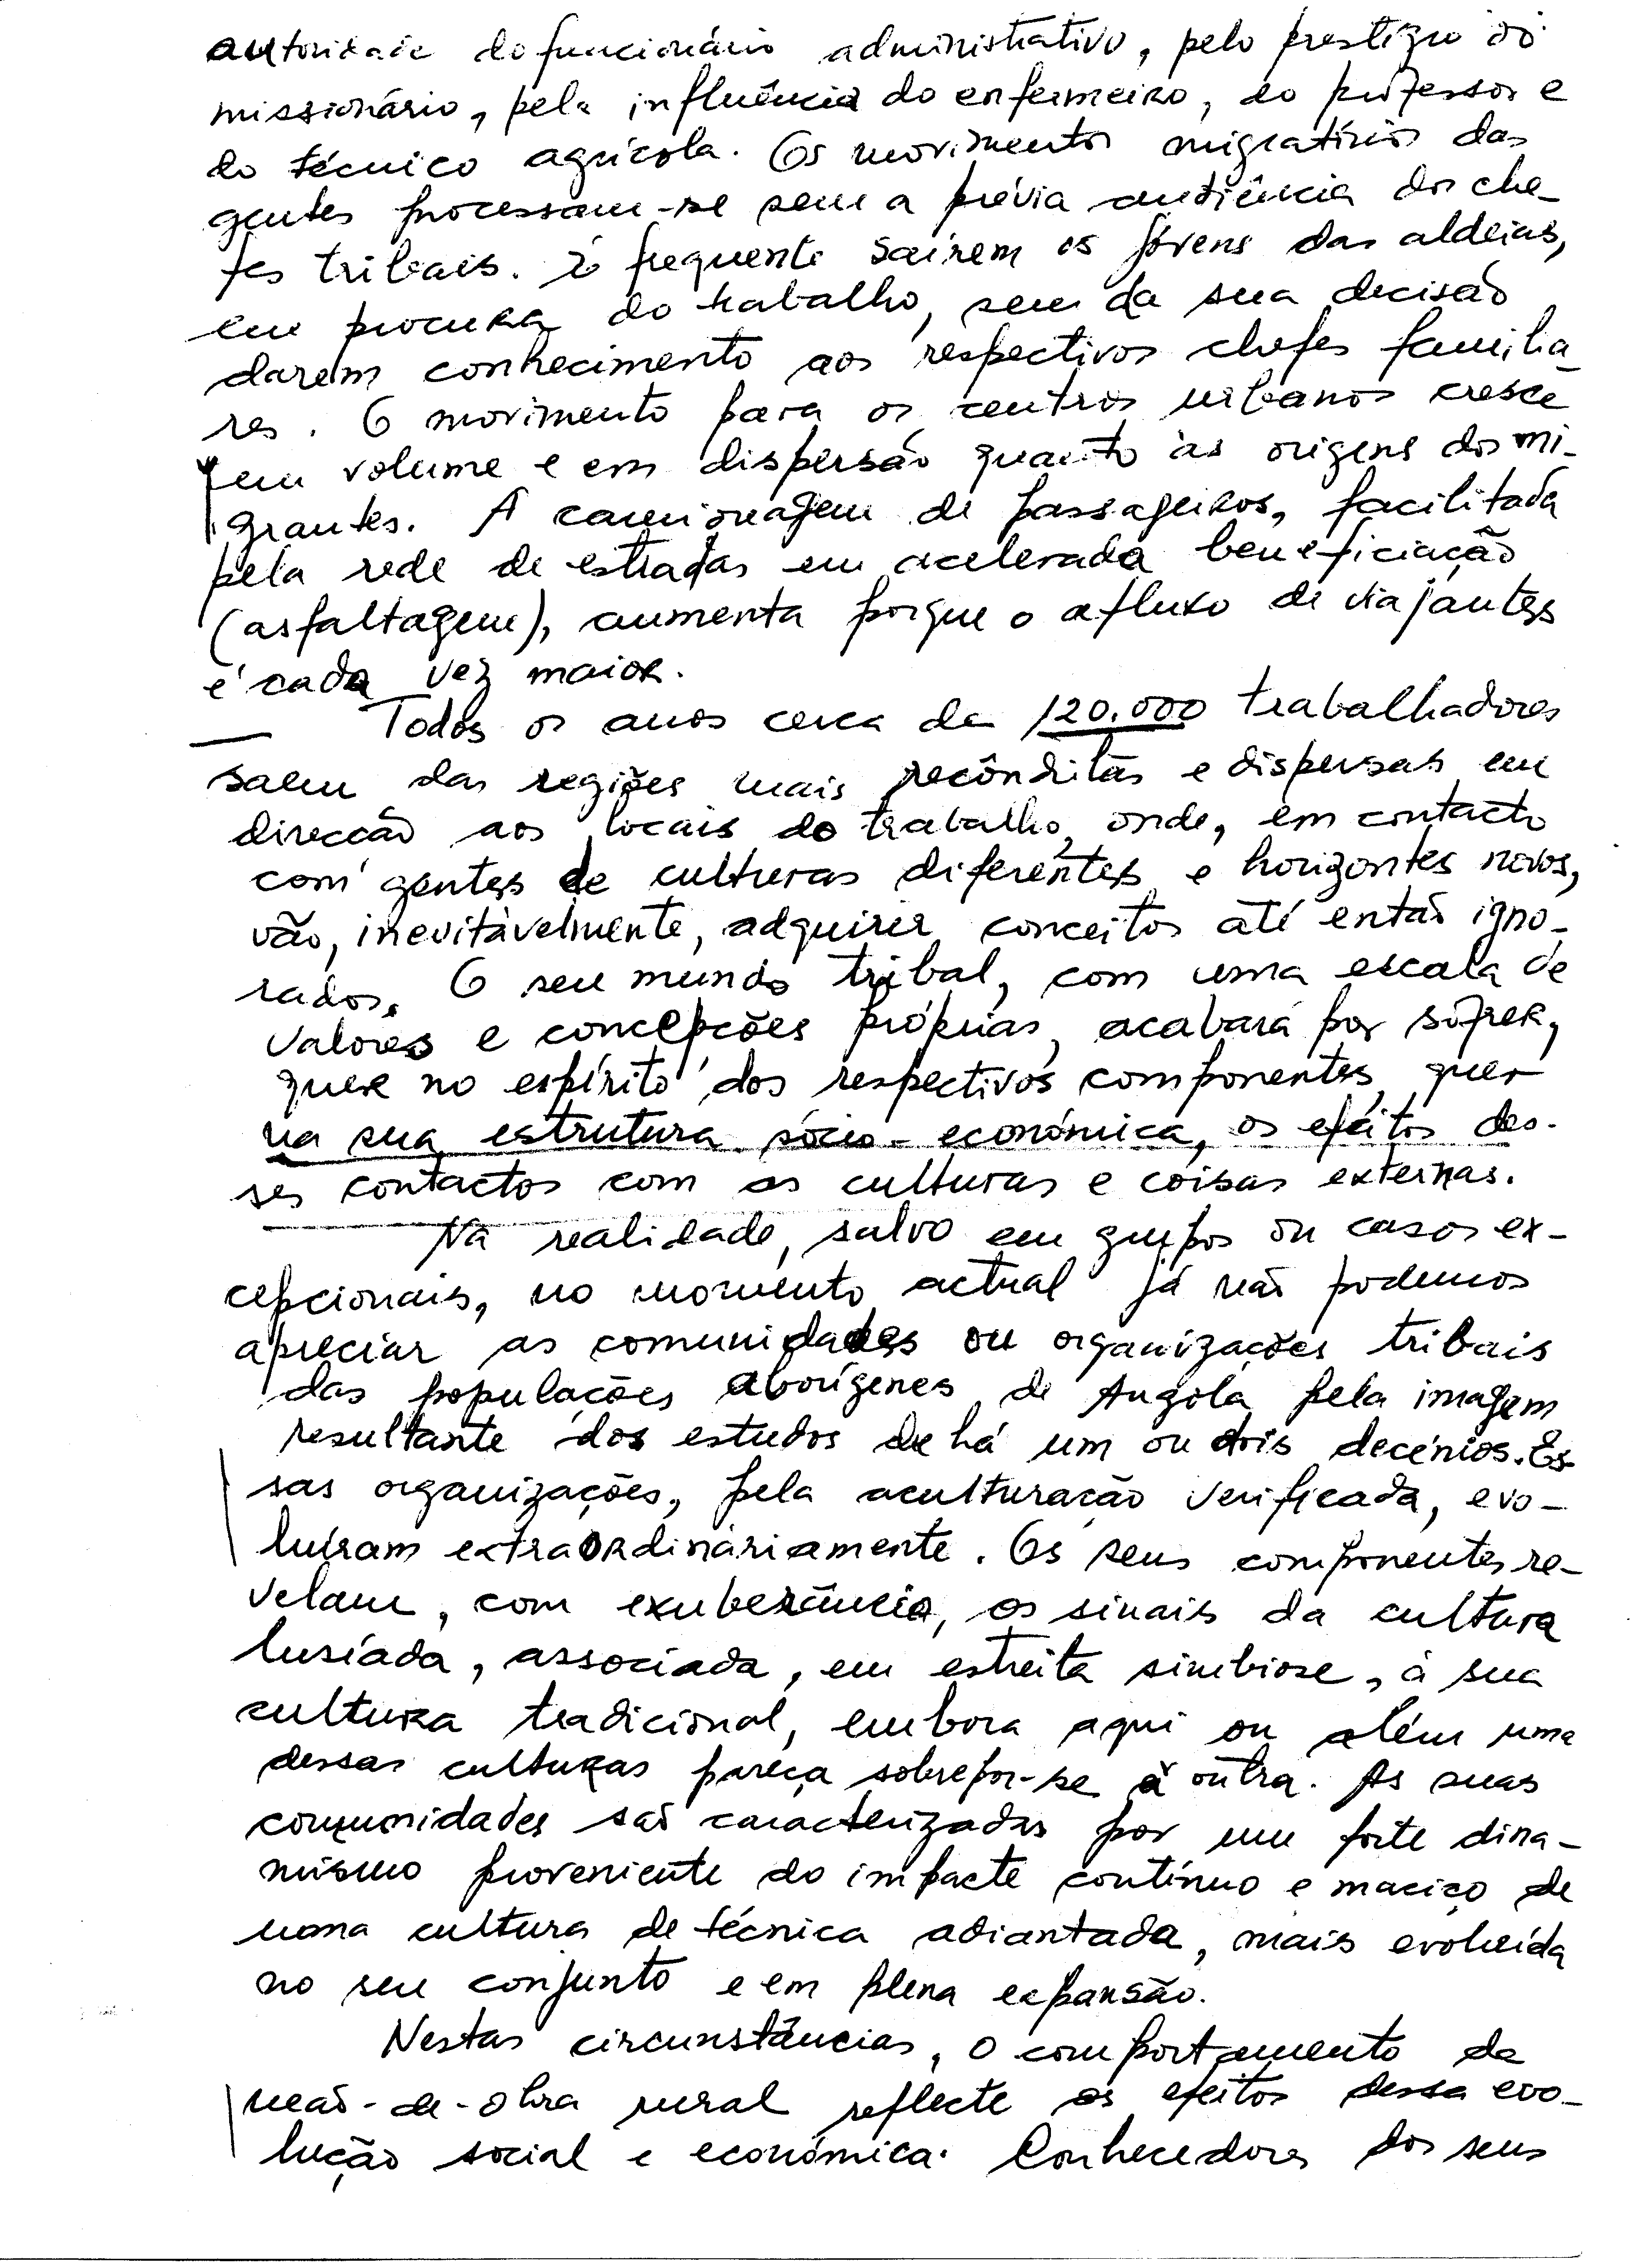 autoridade do funcionário administrativo, pelo prestígio do
missionário, pela influência do enfermeiro, do professor e
do técnico agrícola. Os movimentos migratórios das
gentes processam-se sem a prévia audiência dos che-
fes tribais. É frequente sairem os jóvens das aldeias,
em procura do trabalho, sem da sua decisão
darem conhecimento aos respectivos chefes familia-
res. O movimento para os centros urbanos cresce
em volume e em dispersão quanto às origens dos mi-
grantes. A camionagem de passageiros, facilitada
pela rede de estradas em acelerada beneficiação
(asfaltagem), aumenta porque o afluxo de viajantes
é cada vez maior.
Todos os anos cerca de 120.000 trabalhadores
saem das regiões mais recônditas e dispersas em
direcção aos locais do trabalho, onde, em contacto
com gentes de culturas diferentes e horizontes novos,
vão, inevitàvelmente, adquirir conceitos até então igno-
rados. O seu mundo tribal, com uma escala de
valores e concepções próprias, acabará por sofrer,
quer no espírito dos respectivos componentes, quer
na sua estrutura sócio-económica, os efeitos des-
ses contactos com as culturas e coisas externas.
Na realidade, salvo em grupos ou casos ex-
cepcionais, no momento actual já não podemos
apreciar as comunidades ou organizações tribais
das populações aborígenes de Angola pela imagem
resultante dos estudos de há um ou dois decénios. Es-
sas organizações, pela aculturação verificada, evo-
luíram extraordinàriamente. Os seus componentes re-
velam, com exuberância, os sinais da cultura
lusíada, associada, em estreita simbiose, à sua
cultura tradicional, embora aqui ou além uma
dessas culturas pareça sobrepor-se à outra. As suas
comunidades são caracterizadas por um forte dina-
mismo proveniente do impacte contínuo e maciço de
uma cultura de técnica adiantada, mais evoluída
no seu conjunto e em plena expansão.
Nestas circunstâncias, o comportamento da
mão-de-obra rural reflecte os efeitos dessa evo-
lução social e económica. Conhecedores dos seus